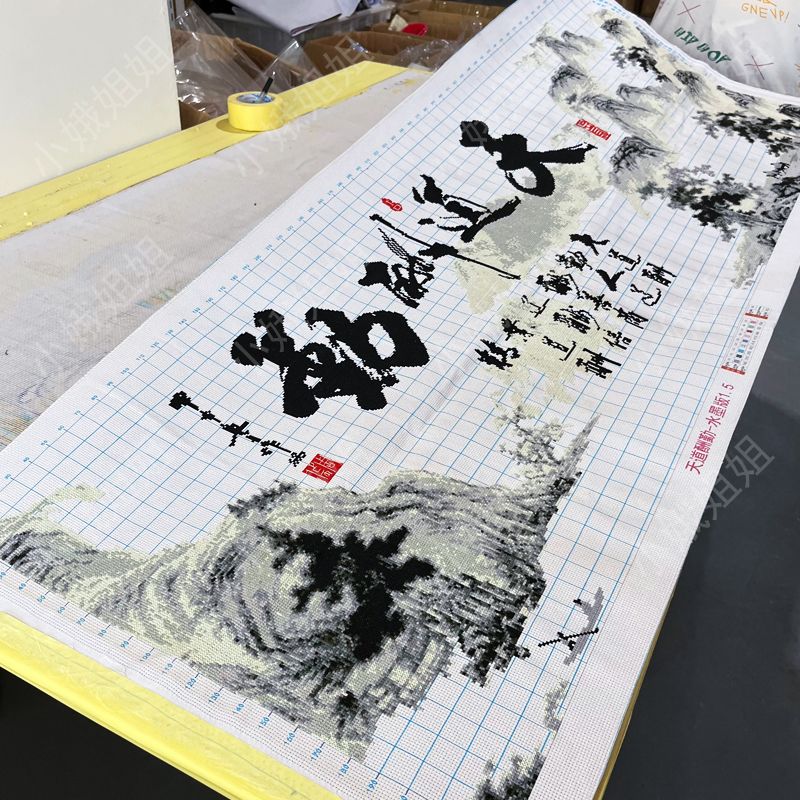 天道酬勤
天道酬
勤人道
酬善商
道酬信
業道酬
精
天道酬勤-水墨版1.5
小娥姐姐